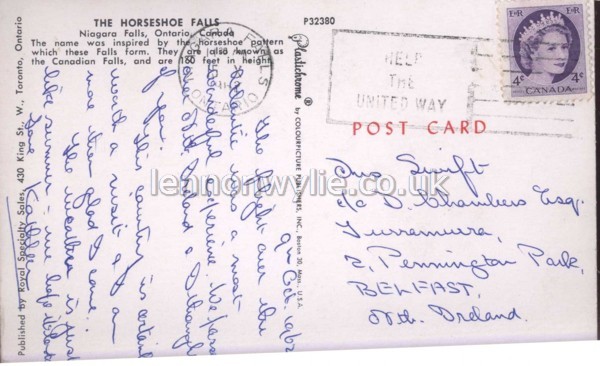 THE HORSESHOE FALLS
Niagara Falls, Ontario, Canada
The name was inspired by the horseshoe pattern
which these Falls form. They are also known as
the Canadian Falls, and are 160 feet in height.
P32380
Published by Royal Specialty Sales, 430 King St. W., Toronto, Ontario
Plastichrome ® by COLOURPICTURE PUBLISHERS, INC., Boston 30, Mass., U.S.A.
HELP
THE
UNITED WAY
E II R E II R
4c 4c
CANADA
POST CARD
9th Oct 1962
The flight over the
Atlantic was a most
wonderful experience. We passed
over Nth. Ireland & I thought
of you. This country is certainly
worth a visit & I am
more than glad I came.
The weather is just
like summer
Love Kathleen
Mrs Swift
c/o D. Chambers Esq.
Turramurra,
2, Pennington Park,
BELFAST,
Nth. Ireland.
lennonwylie.co.uk